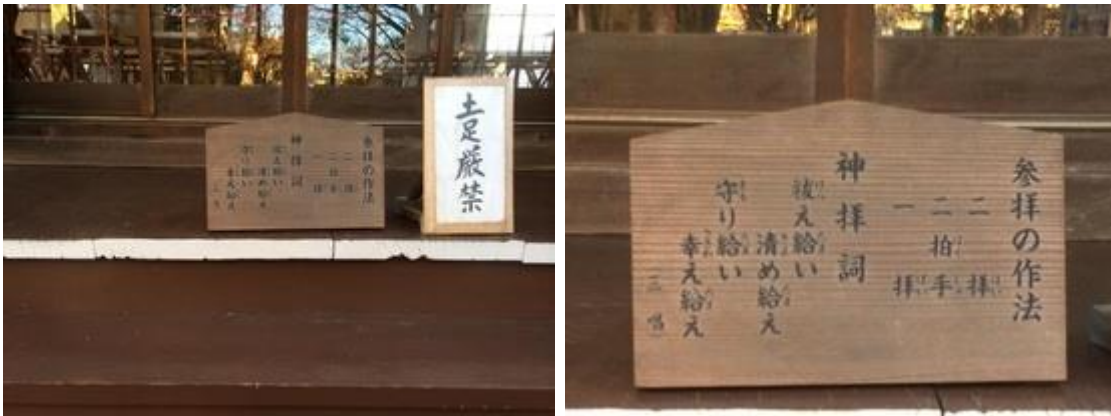 参拝の作法
二拝
二拍手
一拝
神拝詞
祓え給い
清め給え
守り給い
幸え給え
三唱
土足厳禁
参拝の作法
二拝
二拍手
一拝
神拝詞
祓え給い
清め給え
守り給い
幸え給え
(三唱)